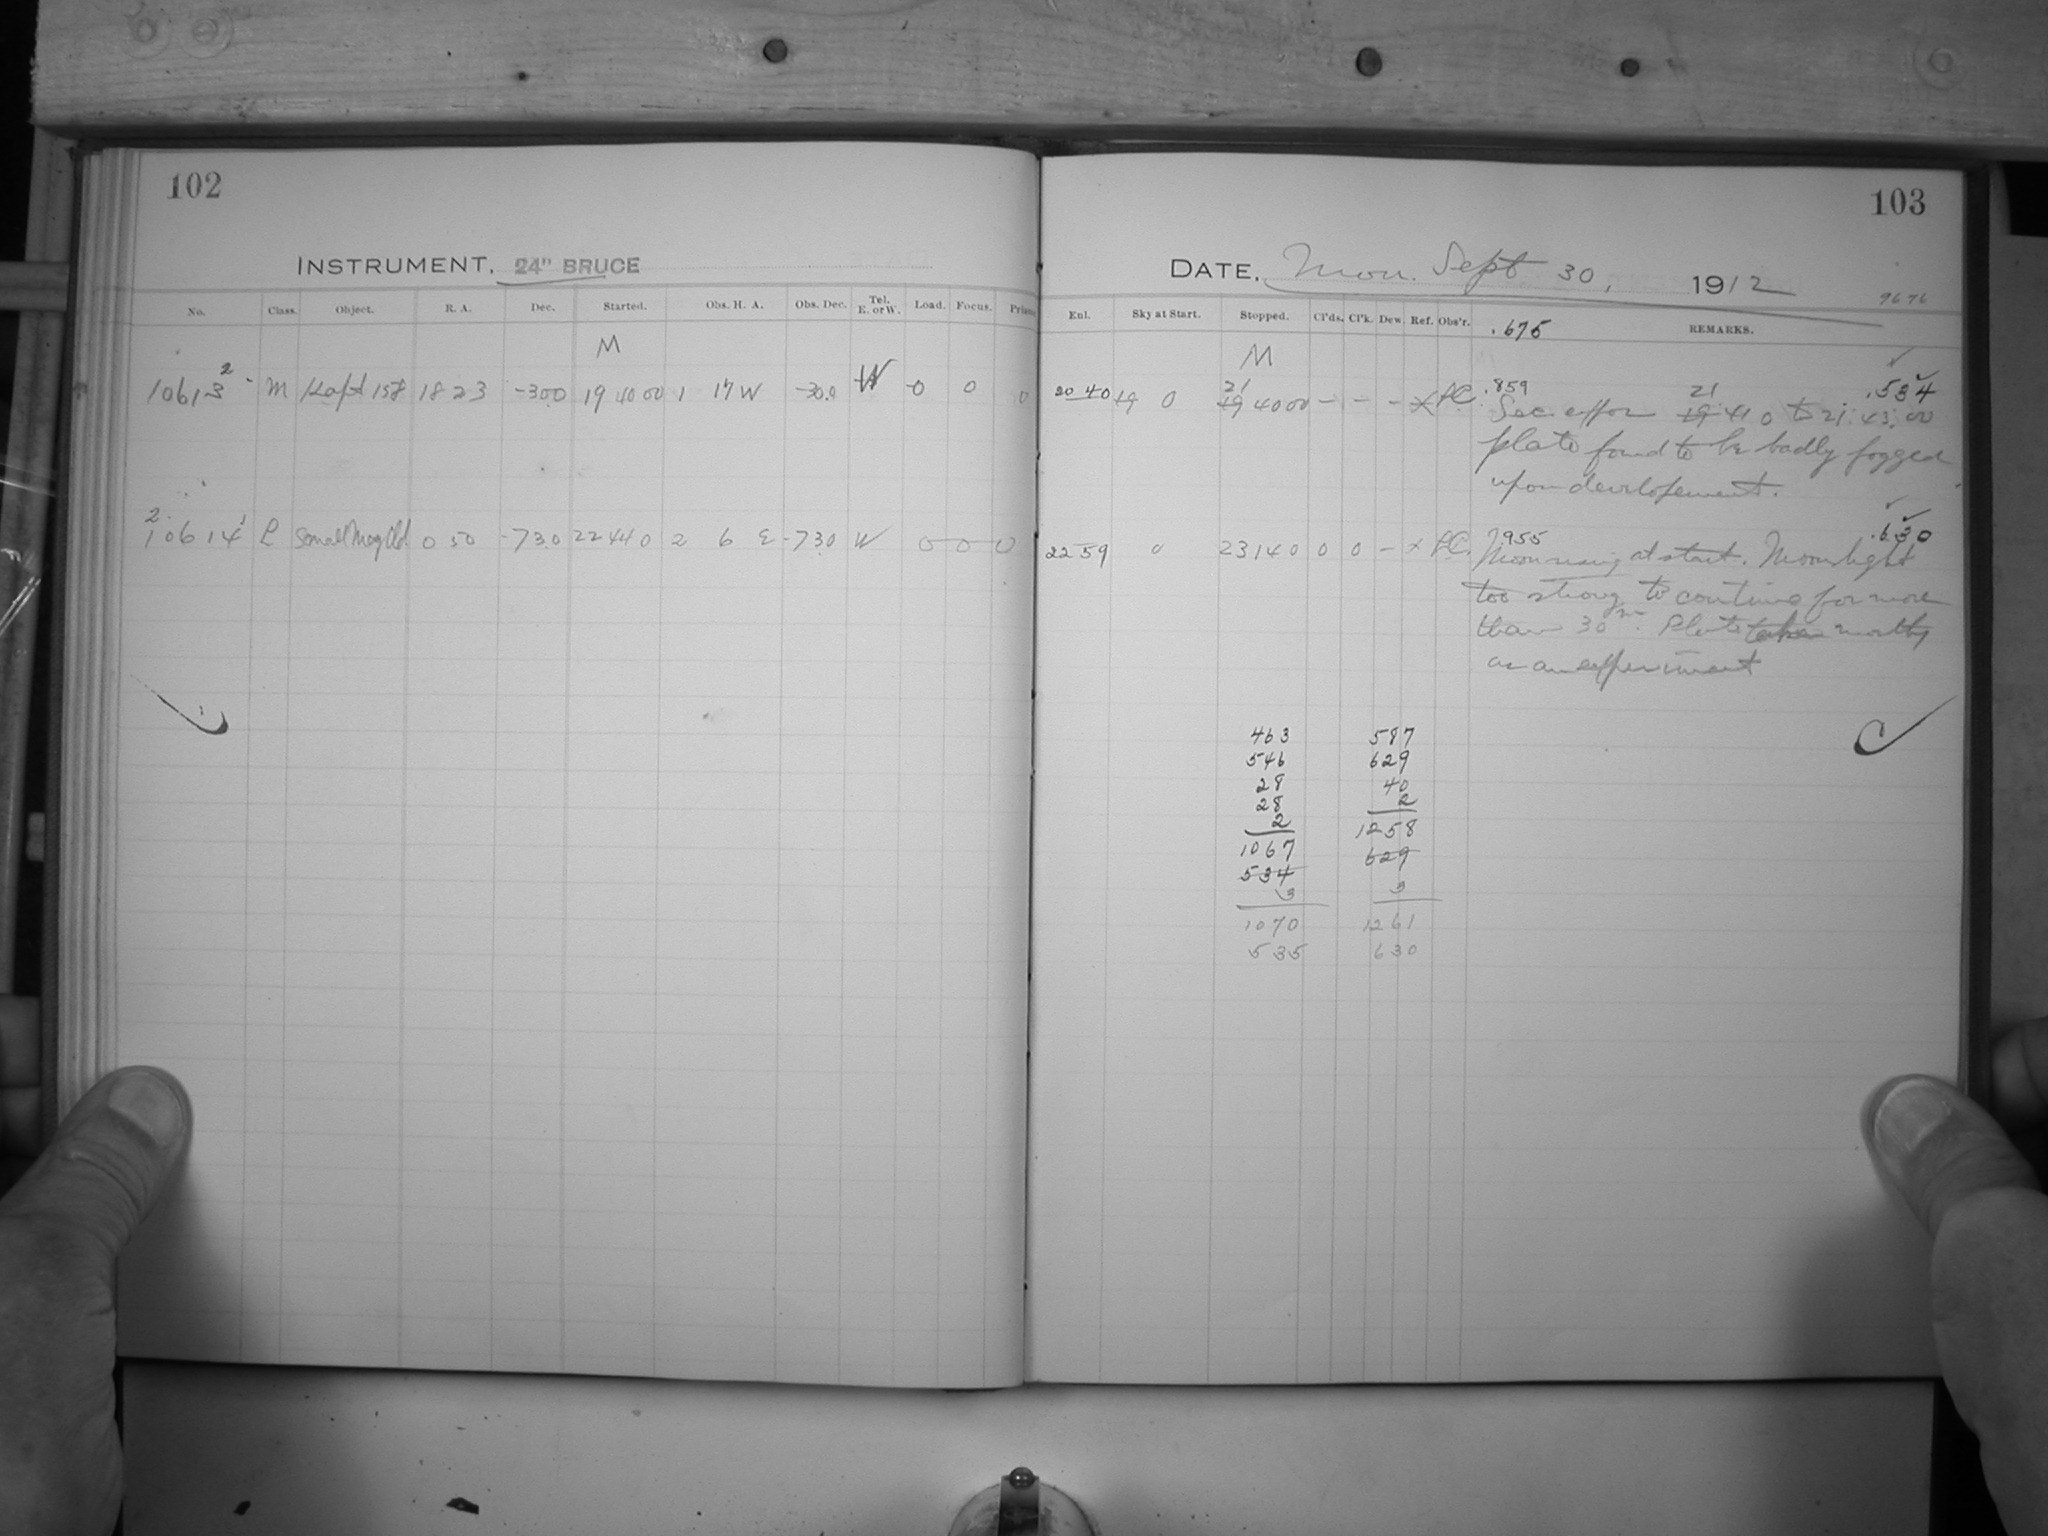 102
INSTRUMENT. 24" BRUCE
No. Class. Object. R. A. Dec. Started. Obs. H. A. Obs. Dec. Tel. E. or W. Load. Focus. Prism
M
10613 2 M Kapt 157 18 23 -30.0 19 40 00 1 17 W -30.0 W 0 0 0
2 10614 1 L Small Mag Cld. 0 50 -73.0 22 44 0 2 6 E -73.0 W 0 0 0
103
DATE. Mon. Sept 30, 1912
7676
Enl. Sky at Start. Stopped. Cl'ds. Cl'k. Dew. Ref. Obs'r. .675 REMARKS.
M
20 40 19 0 21 19 40 00 - - - X .859 .534
Sec. expos 21 19 41 0 to 21:43:00
plate found to be badly fogged
upon developement.
22 59 0 23 14 0 0 0 - x .955 .630
Moon rising at start. Moonlight
too strong to continue for more
than 30m. Plate taken mostly
as an experiment
463 587
546 629
28 40
28 2
2 1258
1067 629
534 3
3
1070 1261
535 630